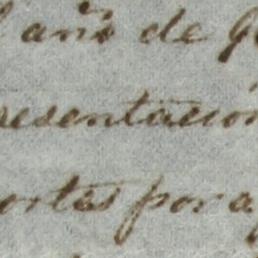 año de
resentacion
ortes por a